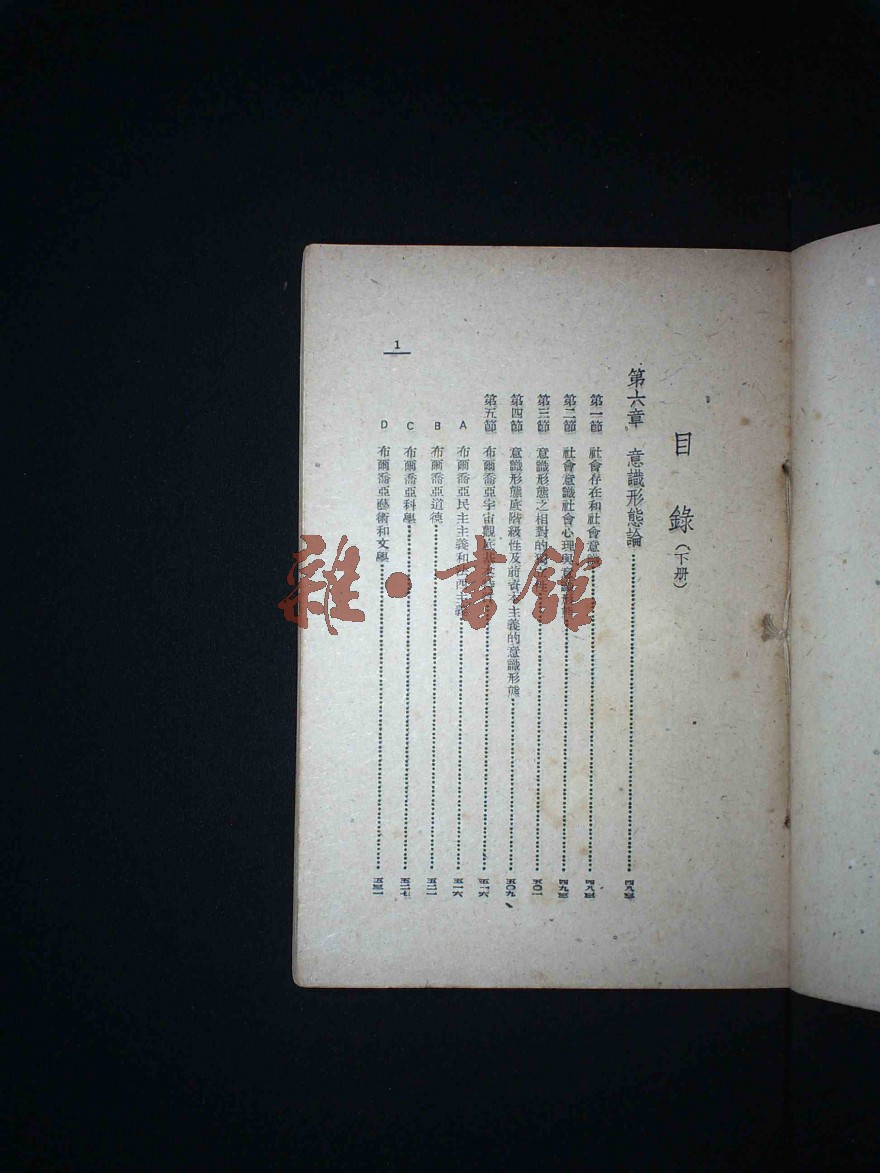 目錄（下册）
第六章 意識形態論
第一節 社會存在和社會意識
第二節 社會意識社會心理與意識形態
第三節 意識形態之相對的獨立性
第四節 意識形態底階級性及前資本主義的意識形態 五〇九
第五節 布爾喬亞宇宙觀底 五一六
A 布爾喬亞民主主義和法西主義 五一六
B 布爾喬亞道德
C 布爾喬亞科學 五二七
D 布爾喬亞藝術和文學
1
雜·書館